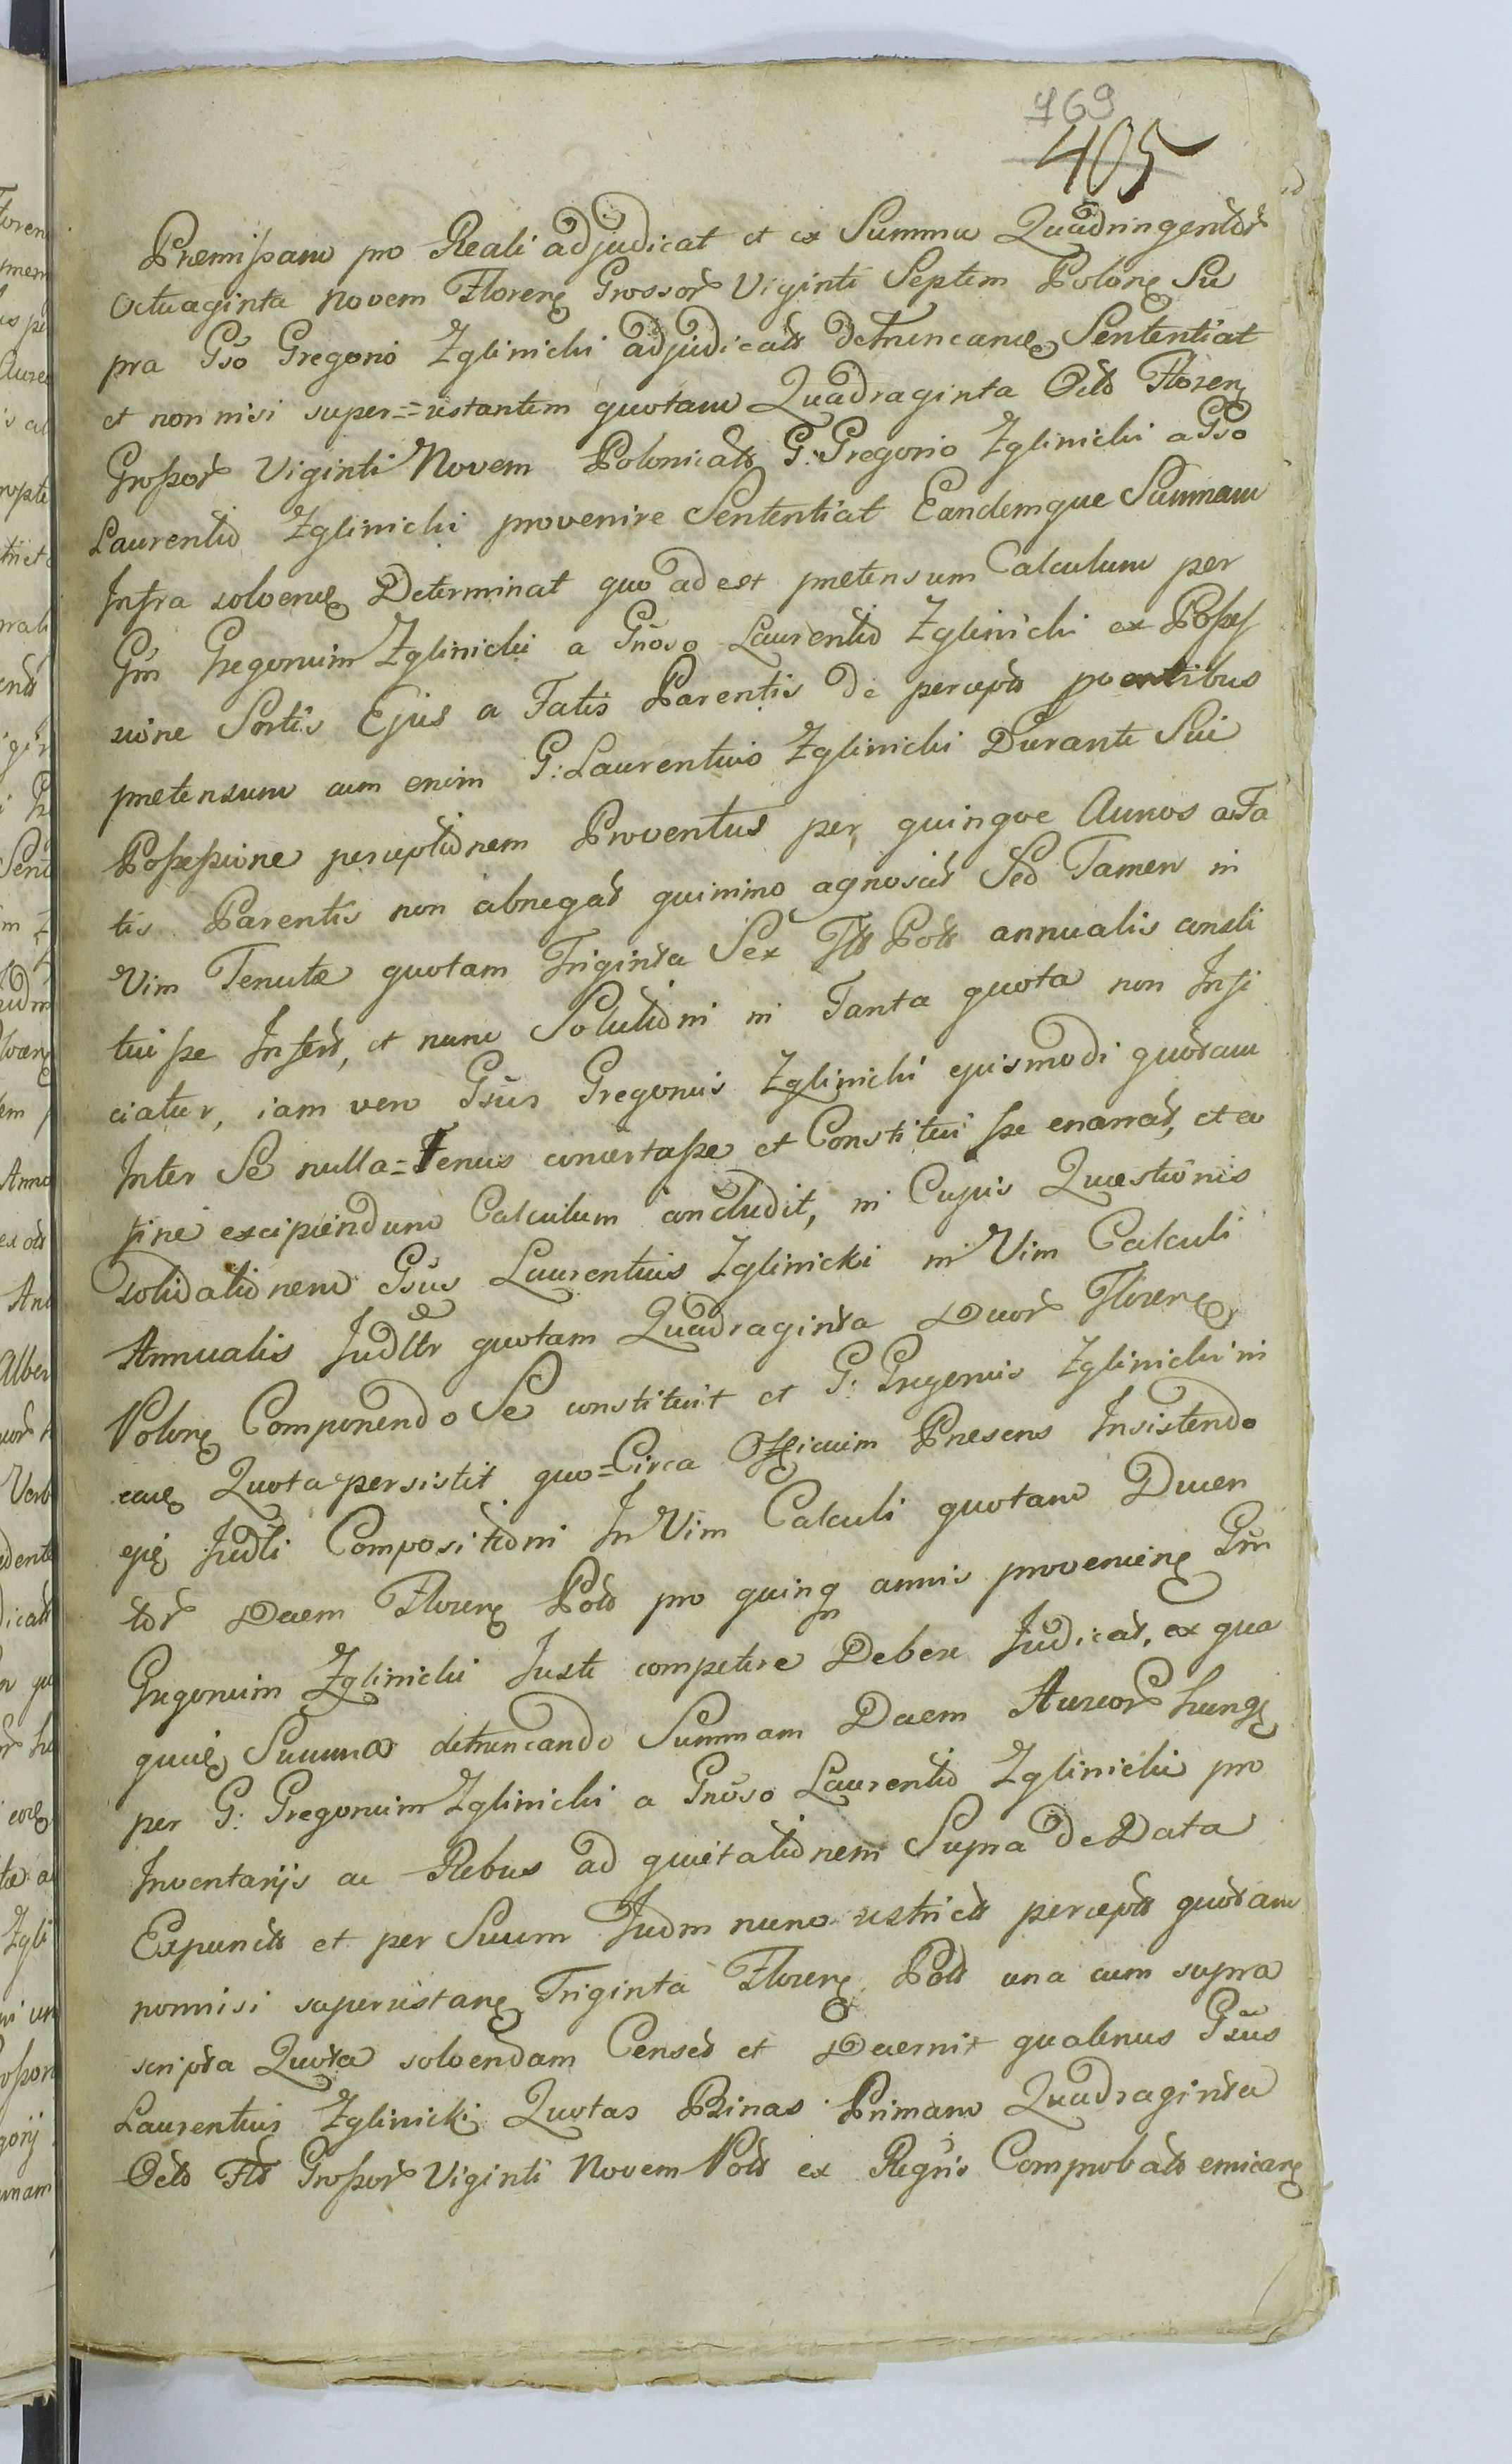 769
405
Premissam pro Reali adjudicat et ex Summa Quadringentor
Octuaginta novem Floren Grossor Viginti Septem Polon Su
pra Gso Gregorio Zglinicki adjudicata detruncan Sententiat
et non nisi super=restantem quotam Quadraginta Octo Floren
Grossor Viginti Novem Polonicat G: Gregorio Zglinicki a Gso
Laurentio Zglinicki provenire Sententiat Eandemque Summam
Infra solven Determinat quo ad est pretensum Calculum per
Gm Gregorium Zglinicki a Gnoso Laurentio Zglinicki ex Posses
sione Sortis Ejus a Fatis Parentis de percept proventibus
pretensum cum enim G: Laurentius Zglinicki Durante Sui
Possessione perceptionem Proventus per quinque Annos a Fa
tis Parentis non abnegat quinimo agnoscit Sed Tamen in
Vim Tenutæ quotam Triginta Sex Fl Pol annualis consti
tuisse Infert, et nunc Solutioni in Tanta quota non Infi
ciatur, iam vero Gsus Gregorius Zglinicki ejusmodi quotam
Inter Se nulla=Tenus concertasse et Constituisse enarrat, et eo
fine excipiendum Calculum concludit, in Cujus Quæstionis
solidationem Gsus Laurentius Zglinicki in Vim Calculi
Annualis Judltr quotam Quadraginta Duor Floren
Polon Componendo Se constituit et G: Gregorius Zglinicki in
ean Quota persistit quo=Circa Officium Presens Insistendo
ejs Judli Compositioni In Vim Calculi quotam Ducen
tor Decem Floren Pol pro quinq annis provenien Gm
Gregorium Zglinicki Juste competere Debere Judicat, ex qua
quid Summa detruncando Summam Decem Aureor hung
per G: Gregorium Zglinicki a Gnoso Laurentio Zglinicki pro
Inventarijs ac Rebus ad quietationem Supra De Data
Expunct et per Suum Judm nunc restrict percept quotam
nonnisi superrestan Triginta Floren Pol una cum supra
scripta Quota solvendam Censet et Decernit quatenus Gsus
Laurentius Zglinicki Quotas Binas Primam Quadraginta
Octo Fl Grossor Viginti Novem Pol ex Regris Comprobat emican